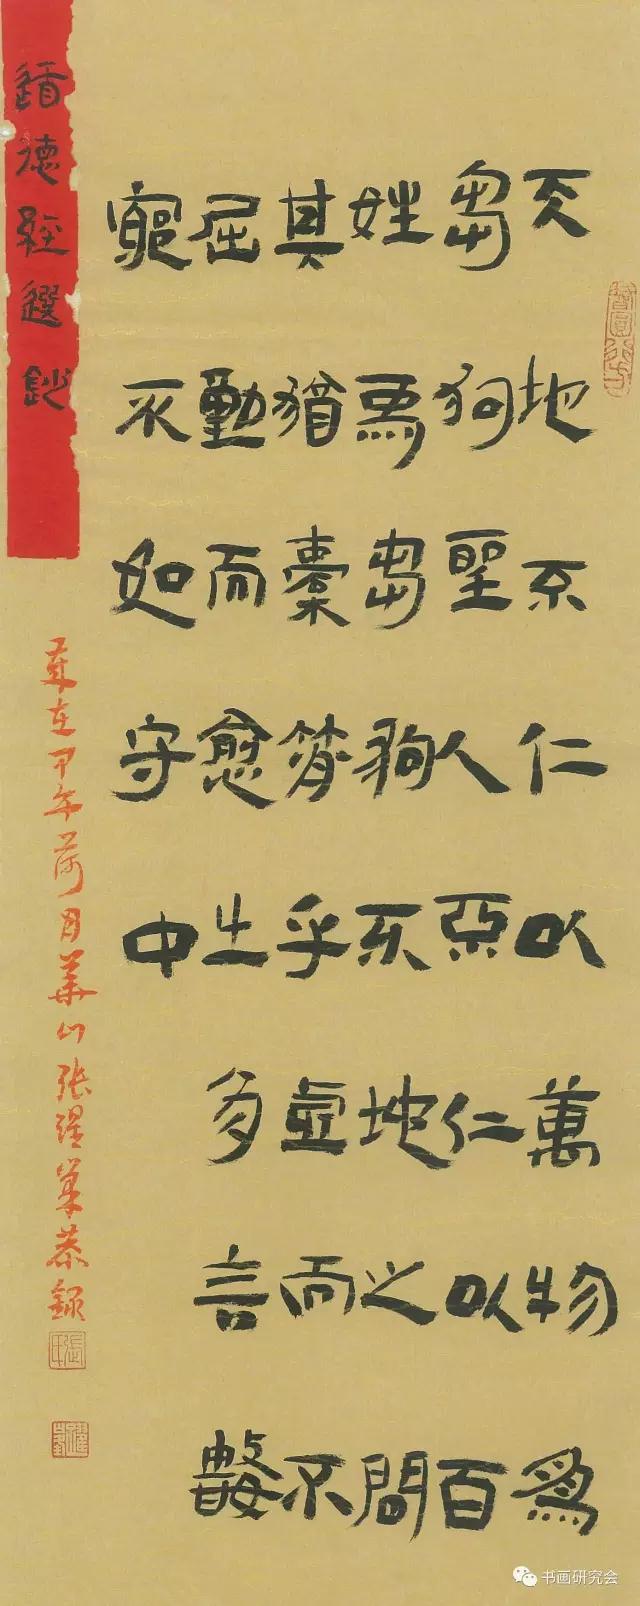 天地不仁以萬物爲
芻狗聖人不仁以百
姓爲芻狗天地之間
其猶橐籥乎虛而不
屈動而愈出多言數
窮不如守中
道德經選鈔
歲在甲午荷月華山張恭錄
书画研究会